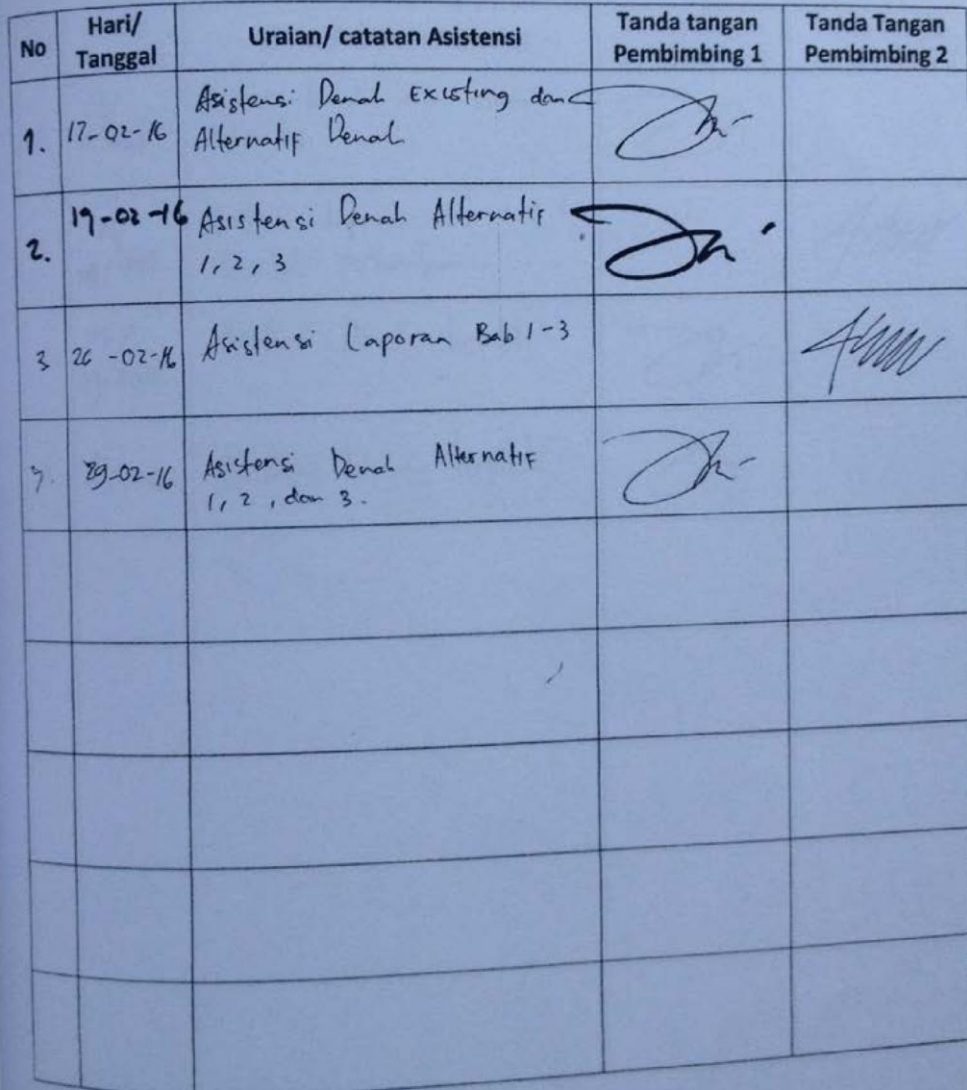 No
Hari/
Tanggal
Uraian/ catatan Asistensi
Tanda tangan
Pembimbing 1
Tanda Tangan
Pembimbing 2
1.
17-02-16
Asistensi Denah Existing dan
Alternatif Denah
2.
19-02-16
Asistensi Denah Alternatif
1, 2, 3
3
26-02-16
Asistensi Laporan Bab 1-3
29-02-16
Asistensi Denah Alternatif
1, 2, dan 3.